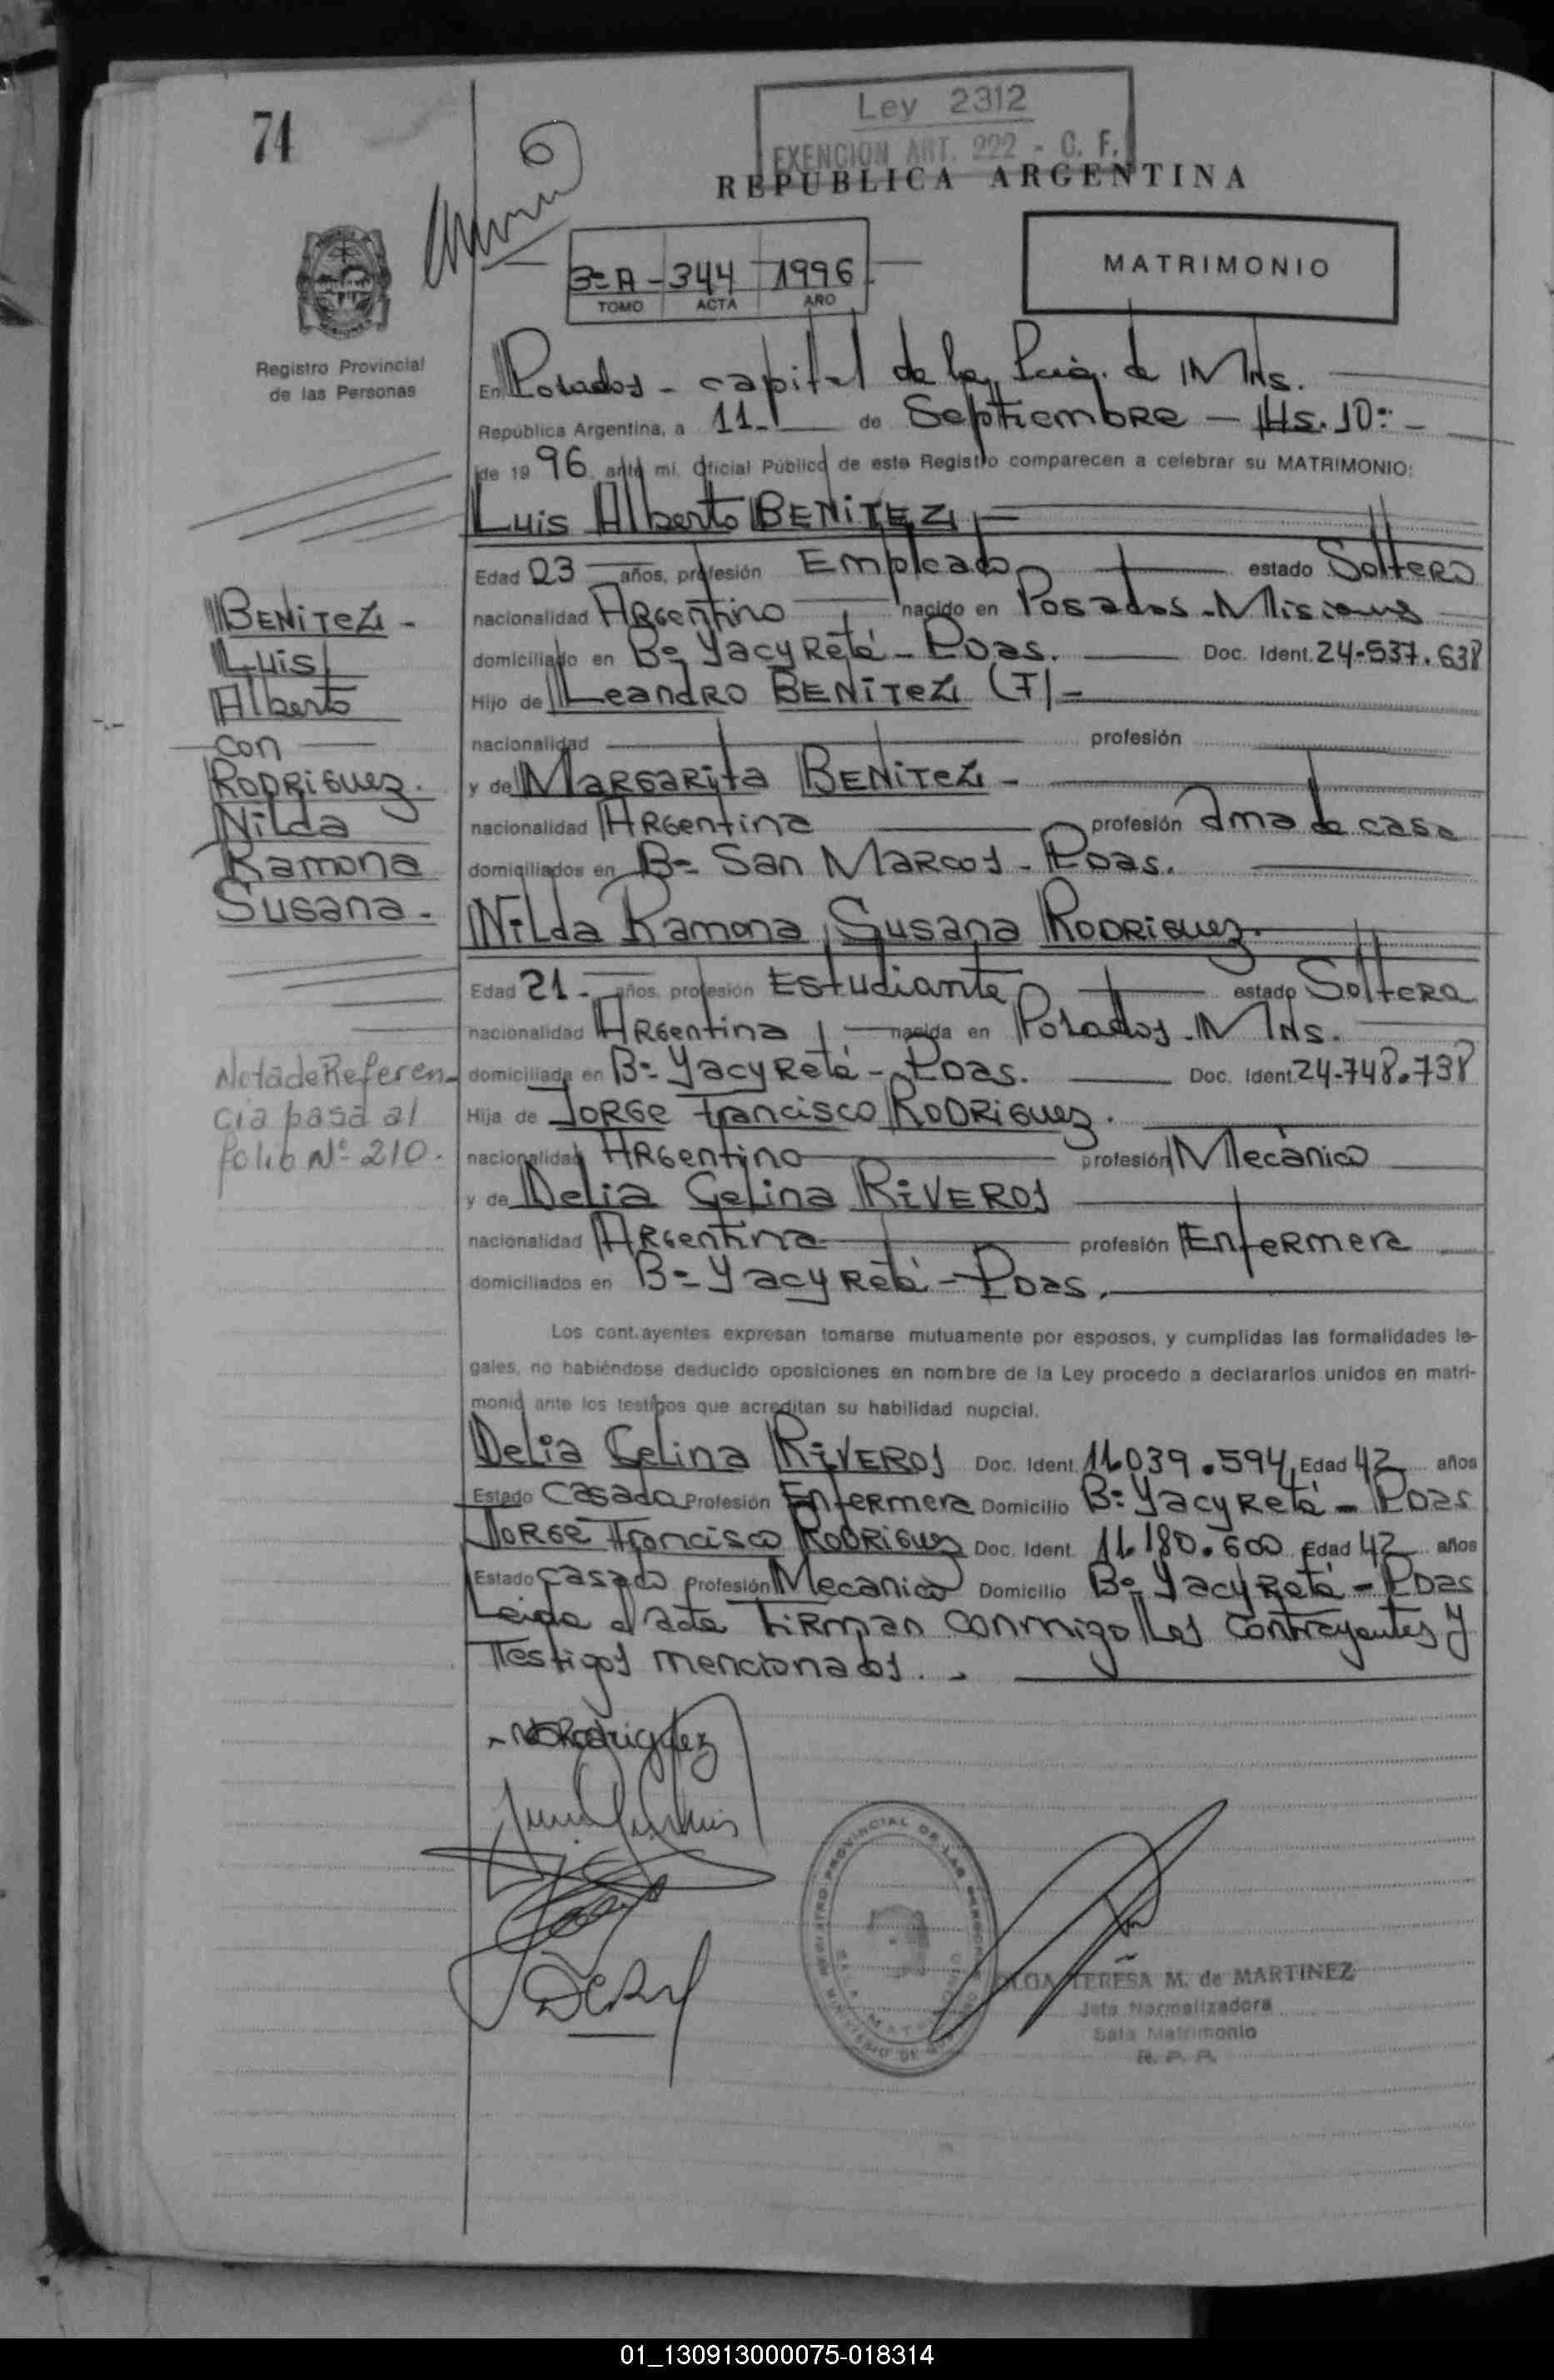 74
6
Ley 2312
EXENCION ART. 222 - C. F.
REPUBLICA ARGENTINA
3º A - 344 1996
TOMO ACTA AÑO
MATRIMONIO
Registro Provincial
de las Personas
En Posadas - capital de la Pcia. de Mns.
República Argentina, a 11 de Septiembre - Hs. 10:
de 1996 ante mi, Oficial Público de este Registro comparecen a celebrar su MATRIMONIO:
Luis Alberto BENITEZ
Edad 23 años, profesión Empleado estado Soltero
nacionalidad Argentino nacido en Posadas - Misiones
domiciliado en Bº Yacyretá - Pdas. Doc. Ident. 24.537.638
Hijo de Leandro BENITEZ (F)
nacionalidad profesión
y de Margarita BENITEZ
nacionalidad Argentina profesión Ama de casa
domiciliados en Bº San Marcos - Pdas.
BENITEZ -
Luis
Alberto
con
RODRIGUEZ.
Nilda
Ramona
Susana.
Nilda Ramona Susana RODRIGUEZ.
Edad 21 años, profesión Estudiante estado Soltera
nacionalidad Argentina nacida en Posadas - Mns.
domiciliada en Bº Yacyretá - Pdas. Doc. Ident. 24.748.738
Hija de Jorge Francisco RODRIGUEZ.
nacionalidad Argentino profesión Mecánico
y de Delia Celina RIVEROS
nacionalidad Argentina profesión Enfermera
domiciliados en Bº Yacyretá - Pdas.
Nota de Referen-
cia pasa al
folio Nº 210.
Los contrayentes expresan tomarse mutuamente por esposos, y cumplidas las formalidades le-
gales, no habiéndose deducido oposiciones en nombre de la Ley procedo a declararlos unidos en matri-
monio ante los testigos que acreditan su habilidad nupcial.
Delia Celina RIVEROS Doc. Ident. 11.039.594 Edad 42 años
Estado Casada Profesión Enfermera Domicilio Bº Yacyretá - Pdas
Jorge Francisco RODRIGUEZ Doc. Ident. 11.180.600 Edad 42 años
Estado Casado Profesión Mecanico Domicilio Bº Yacyretá - Pdas
Leida el acta Firman conmigo Los Contrayentes y
Testigos mencionados.
Rodriguez
REGISTRO PROVINCIAL DE LAS PERSONAS
TERESA M. de MARTINEZ
Jefa Normalizadora
Sala Matrimonio
R. P. P.
01_130913000075-018314